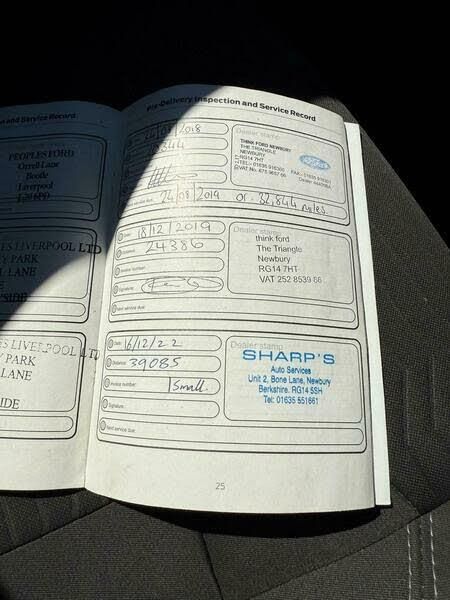 on and Service Record
PEOPLES FORD
Orrell Lane
Bootle
Liverpool
L20 6PD
ES LIVERPOOL LTD
Y PARK
L LANE
YSIDE
ES LIVERPOOL LTD
Y PARK
LANE
IDE
Pre-Delivery Inspection and Service Record
24/08/2018
Dealer stamp
THINK FORD NEWBURY
THE TRIANGLE
NEWBURY
RG14 7HT
TEL:- 01635
VAT No.
FAX:- 01635
Dealer
Ford
service due: 24/08/2019 or 32,844 miles.
Date: 18/12/2019
Distance: 24386
Invoice number:
Signature:
Next service due:
Dealer stamp
think ford
The Triangle
Newbury
RG14 7HT
VAT 252 8539 66
Date: 16/12/22
Distance: 39085
Invoice number: 1 Small.
Signature:
Next service due:
Dealer stamp
SHARP'S
Auto Services
Unit 2, Bone Lane, Newbury
Berkshire. RG14 5SH
Tel: 01635 551661
25